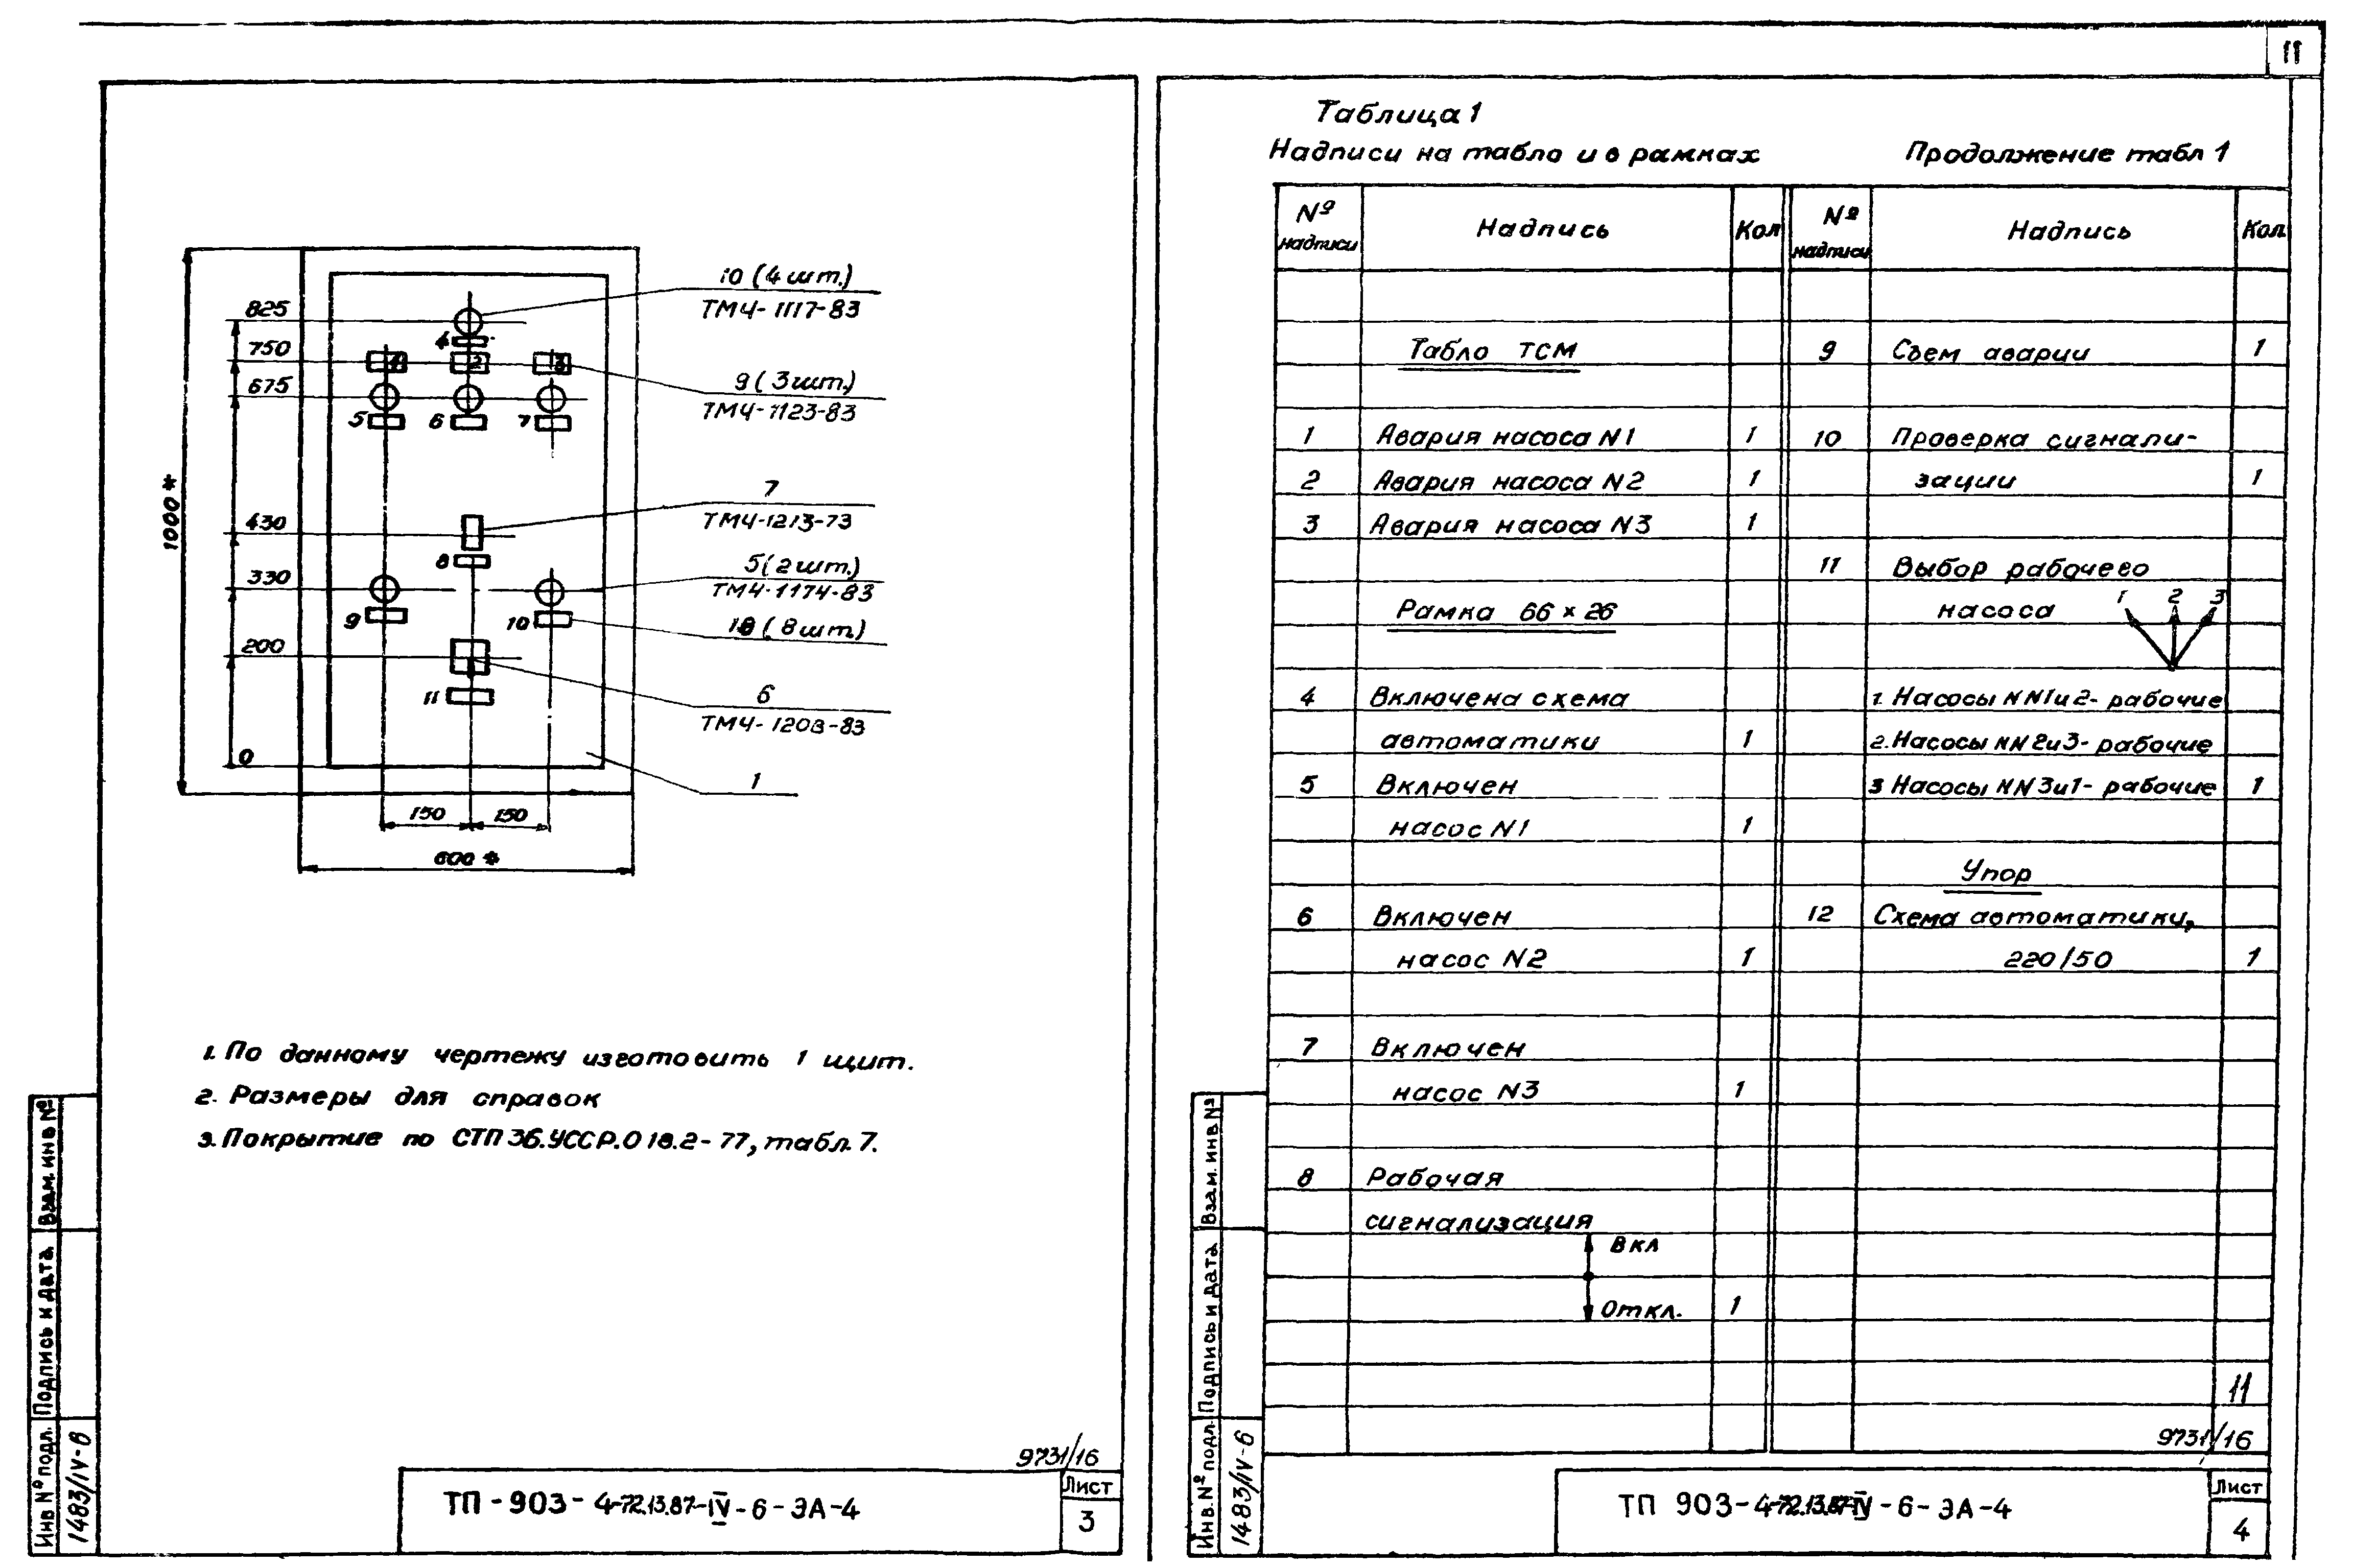 11
10 (4 шт.)
ТМЧ-1117-83
825
4
750
1 2 3
9 (3 шт.)
ТМЧ-1123-83
675
5 6 7
7
ТМЧ-1213-73
1000*
430
8
5 (2 шт.)
ТМЧ-1174-83
330
9 10
(8 шт.)
200
11
6
ТМЧ-1208-83
0
1
150 150
600*
1. По данному чертежу изготовить 1 щит.
2. Размеры для справок
3. Покрытие по СТП 36.УССР.018.2-77, табл. 7.
Инв № подл. Подпись и дата Взам. инв №
1483/IV-6
9731/16
ТП-903-4-72.13.87-IV-6-ЭА-4
Лист
3
Таблица 1
Надписи на табло и в рамках
№ надписи Надпись Кол
Табло ТСМ
1 Авария насоса N1 1
2 Авария насоса N2 1
3 Авария насоса N3 1
Рамка 66 × 26
4 Включена схема
автоматики 1
5 Включен
насос N1 1
6 Включен
насос N2 1
7 Включен
насос N3 1
8 Рабочая
сигнализация
Вкл
Откл. 1
Продолжение табл 1
№ надписи Надпись Кол.
9 Съем аварии 1
10 Проверка сигнали-
зации 1
11 Выбор рабочего
насоса 1 2 3
1. Насосы NN1и2- рабочие
2. Насосы NN2и3- рабочие
3 Насосы NN3и1- рабочие 1
Упор
12 Схема автоматики,
220/50 1
11
9731/16
Инв. № подл. Подпись и дата Взам. инв №
1483/IV-6
ТП 903-4-72.13.87-IV-6-ЭА-4
Лист
4